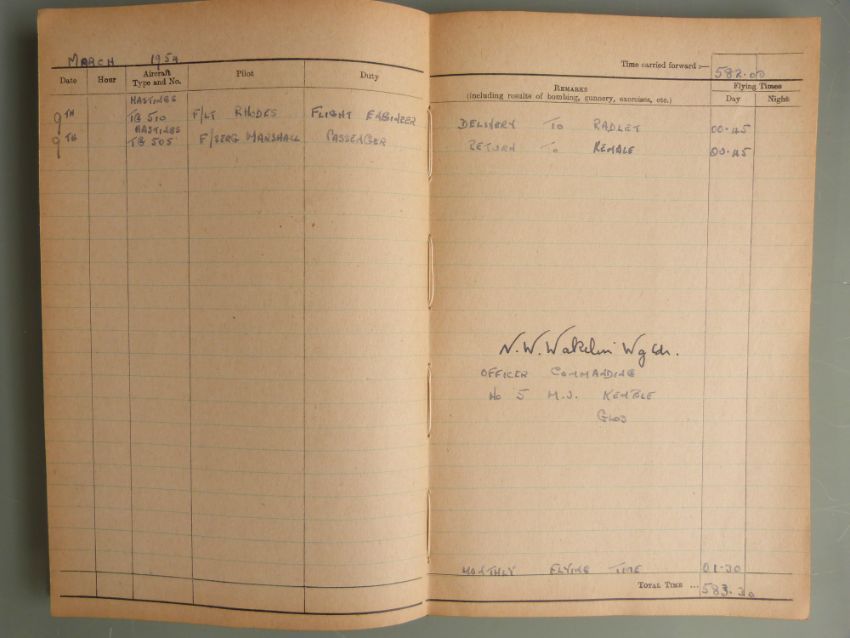 MARCH 1954
Date Hour Aircraft Type and No. Pilot Duty
HASTINGS
9TH TG 510 F/LT RHODES FLIGHT ENGINEER
HASTINGS
9TH TG 505 F/SERG MARSHALL PASSENGER
Time carried forward :— 582.00
REMARKS
(including results of bombing, gunnery, exercises, etc.)
Flying Times
Day Night
DELIVERY TO RADLET 00.45
RETURN TO KEMBLE 00.45
N. W. Wakelin Wg Cdr.
OFFICER COMMANDING
No 5 M.U. KEMBLE
GLOS
MONTHLY FLYING TIME 01.30
TOTAL TIME ... 583.30